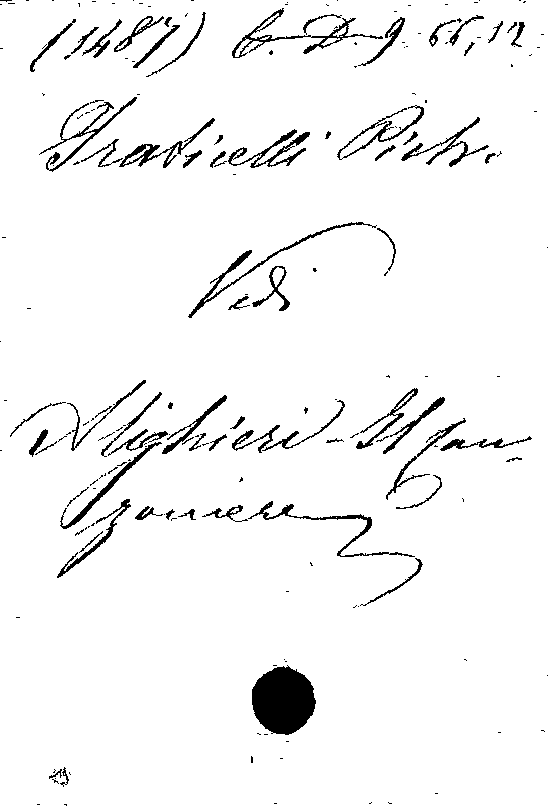 (1487) C. D. 9 66,12
Fraticelli Pietr.
Vedi
Alighieri - Il Can-
zoniere